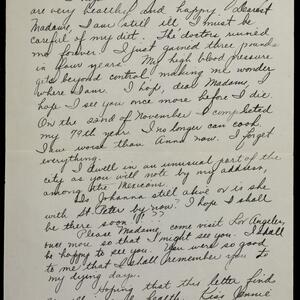 are very healthy and happy. Dearest
Madame, I am still ill I must be
careful of my diet. The doctors ruined
me forever. I just gained three pounds
in four years. My high blood pressure
gets beyond control, making me wonder
where I am. I hope, dear Madame, I
hope I see you once more before I die.
On the 22nd of November I completed
my 79th year I no longer can cook,
I am worse than Anna now. I forget
everything.
I dwell in an unusual part of the
city as you will note by my address,
among the Mexicans
Is Johanna still alive or is she
with St. Peter by now? I hope I shall
be there soon
Please Madame come visit Los Angeles
once more so that I might see you. I shall
be happy to see you. You were so good
to me that I shall remember you to
my dying day.
Hoping that this letter find